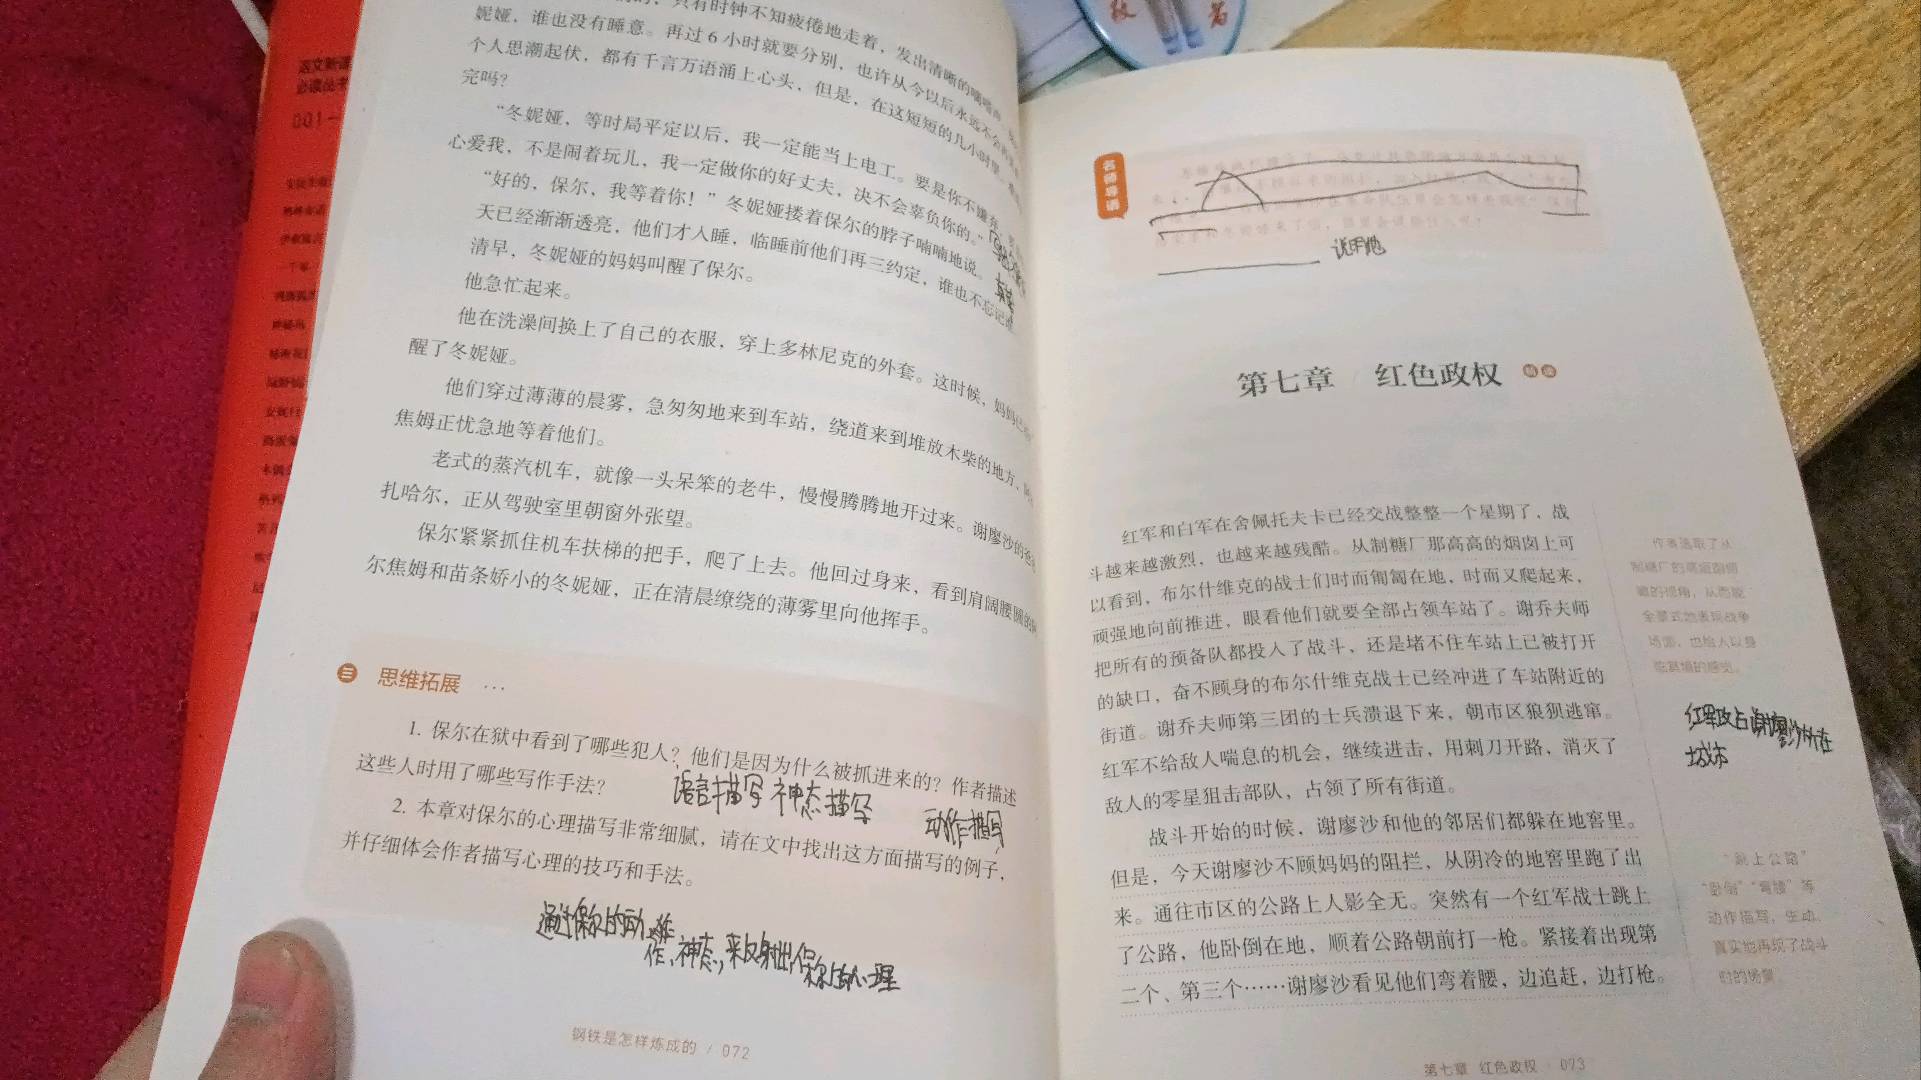 语文新课
必读丛书
001-
只有时钟不知疲倦地走着，发出清晰的嘀嗒声
妮娅，谁也没有睡意。再过6小时就要分别，也许从今以后永远不会再
个人思潮起伏，都有千言万语涌上心头，但是，在这短短的几小时里，
完吗？
“冬妮娅，等时局平定以后，我一定能当上电工。要是你不嫌弃，
心爱我，不是闹着玩儿，我一定做你的好丈夫，决不会辜负你的。”
“好的，保尔，我等着你！”冬妮娅搂着保尔的脖子喃喃地说。
天已经渐渐透亮，他们才入睡，临睡前他们再三约定，谁也不忘记谁。
清早，冬妮娅的妈妈叫醒了保尔。
他急忙起来。
他在洗澡间换上了自己的衣服，穿上多林尼克的外套。这时候，妈妈已
醒了冬妮娅。
他们穿过薄薄的晨雾，急匆匆地来到车站，绕道来到堆放木柴的地方，阿
焦姆正忧急地等着他们。
老式的蒸汽机车，就像一头呆笨的老牛，慢慢腾腾地开过来。谢廖沙的爸爸
扎哈尔，正从驾驶室里朝窗外张望。
保尔紧紧抓住机车扶梯的把手，爬了上去。他回过身来，看到肩阔腰圆的阿
尔焦姆和苗条娇小的冬妮娅，正在清晨缭绕的薄雾里向他挥手。
三 思维拓展 …
1. 保尔在狱中看到了哪些犯人？他们是因为什么被抓进来的？作者描述
这些人时用了哪些写作手法？
语言描写 神态描写 动作描写
2. 本章对保尔的心理描写非常细腻，请在文中找出这方面描写的例子，
并仔细体会作者描写心理的技巧和手法。
通过保尔的动
作、神态，来反射出保尔的心理
钢铁是怎样炼成的 / 072
名师导语
说明地
第七章 / 红色政权 精读
红军和白军在舍佩托夫卡已经交战整整一个星期了，战
斗越来越激烈，也越来越残酷。从制糖厂那高高的烟囱上可
以看到，布尔什维克的战士们时而匍匐在地，时而又爬起来，
顽强地向前推进，眼看他们就要全部占领车站了。谢乔夫师
把所有的预备队都投入了战斗，还是堵不住车站上已被打开
的缺口，奋不顾身的布尔什维克战士已经冲进了车站附近的
街道。谢乔夫师第三团的士兵溃退下来，朝市区狼狈逃窜。
红军不给敌人喘息的机会，继续进击，用刺刀开路，消灭了
敌人的零星狙击部队，占领了所有街道。
战斗开始的时候，谢廖沙和他的邻居们都躲在地窖里。
但是，今天谢廖沙不顾妈妈的阻拦，从阴冷的地窖里跑了出
来。通往市区的公路上人影全无。突然有一个红军战士跳上
了公路，他卧倒在地，顺着公路朝前打一枪。紧接着出现第
二个、第三个……谢廖沙看见他们弯着腰，边追赶，边打枪。
作者选取了从
制糖厂的高烟囱俯
瞰的视角，从而能
全景式地表现战争
场面，也给人以身
临其境的感觉。
红军攻占谢廖沙所在
城市
“跳上公路”
“卧倒”“弯腰”等
动作描写，生动、
真实地再现了战斗
时的场景。
第七章 红色政权 · 073